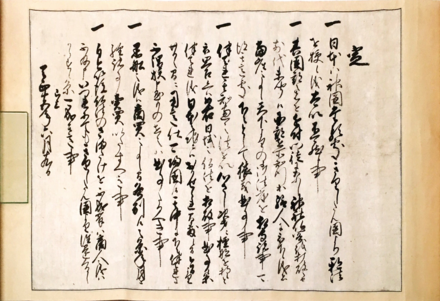 定
一 日本ハ神国たる処きりしたん国より邪法
を授候儀太以不可然候事
一 其国郡之者を近付門徒になし神社仏閣を打破之
由前代未聞候国郡在所知行等給人に被下候儀者
当座之事候天下よりの御法度を相守諸事
可得其意処下々として猥義曲事事
一 伴天連其知恵之法を以心さし次第に檀那を持候
と被思召候へハ如右日域之仏法を相破事曲事候条
伴天連儀日本之地ニハおかせられ間敷候間今日より
廿日之間ニ用意仕可帰国候其中に下々伴天連
に不謂族申懸もの在之ハ曲事たるへき事
一 黒船之儀ハ商買之事候間各別に候之条年月を
経諸事売買いたすへき事
一 自今以後仏法のさまたけを不成輩ハ商人之儀ハ
不及申いつれにてもきりしたん国より往還くるし
からす候条可成其意事
已上
天正十五年六月十九日